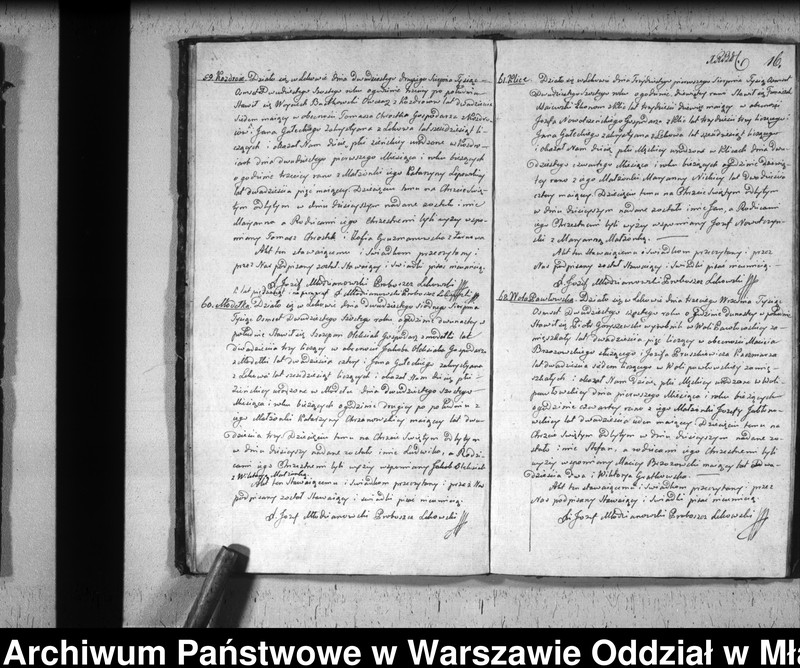 16.
59. Kozdroie Działo się w Lekowie dnia dwudziestego drugiego Sierpnia Tysiąc
Osmset Dwudziestego Szostego roku o godzinie po południu
Stawił się Woyciech Bartkowski Owczarz z Kozdroiow lat dwadzieścia
siedm maiący w obecności Tomasza Chrostka Gospodarza z Kozdro-
iow i Jana Gałeckiego zakrystyana z Lekowa lat sześćdziesiąt li-
czących i okazał Nam dziecię płci żeńskiey urodzone w Kozdro-
iach dnia dwudziestego pierwszego Miesiąca i roku bieżących
o godzinie trzeciey rano z Małżonki iego Katarzyny
lat dwadzieścia pięć maiącey Dziecięciu temu na Chrzcie Świę-
tym odbytym w dniu dzisieyszym nadane zostało imie
Maryanna a Rodzicami iego Chrzestnemi byli wyżey wspo-
mniany Tomasz Chrostek i Zofia
Akt ten stawaiącemu i Świadkom przeczytany i
przez Nas podpisany został Stawaiący i świadki pisać nieumieią.
X. Jozef Młodzianowski Proboszcz Lekowski
60. Modełka Działo się w Lekowie dnia dwudziestego siodmego Sierpnia
Tysiąc Osmset Dwudziestego Szostego roku o godzinie dwunastey w
południe Stawił się Szczepan Oleksiak Gospodarz z Modełki lat
dwadzieścia trzy liczący w obecności Jakuba Oleksiaka Gospodarza
z Modełki lat dwadzieścia cztery i Jana Gałeckiego zakrystyana
z Lekowa lat sześćdziesiąt liczących i okazał Nam dziecię płci
żeńskiey urodzone w Modełce dnia dwudziestego szostego
Miesiąca i roku bieżących o godzinie drugiey po południu z
iego Małżonki Katarzyny Chrzanowskiey maiącey lat dwa-
dzieścia trzy Dziecięciu temu na Chrzcie Świętym odbytym
w dniu dzisieyszym nadane zostało imie Ludwika, a Rodzi-
cami iego Chrzestnemi byli wyżey wspomniany Jakub Oleksiak
z Wiktoryą Małżonką.
Akt ten Stawaiącemu i Świadkom przeczytany i przez Nas
podpisany został Stawaiący i świadki pisać nieumieią.
X. Jozef Młodzianowski Proboszcz Lekowski
61. Klice Działo się w Lekowie dnia Trzydziestego pierwszego Sierpnia Tysiąc Osmset
Dwudziestego Szostego roku o godzinie dziewiątey rano Stawił się
Ekonom z Klic lat trzydzieści dziewięć maiący w obecności
Jozefa Gospodarza z Klic lat trzydzieści trzy liczącego i
Jana Gałeckiego zakrystyana z Lekowa lat sześćdziesiąt liczącego
i okazał Nam dziecię płci Męzkiey urodzone w Klicach dnia dwu-
dziestego czwartego Miesiąca i roku bieżących o godzinie dziewią-
tey rano z iego Małżonki Maryanny lat dwadzieścia
cztery maiącey Dziecięciu temu na Chrzcie Świętym odbytym
w dniu dzisieyszym nadane zostało imie Jan, a Rodzicami
iego Chrzestnemi byli wyżey wspomniany Jozef
z Maryanną Małżonką.
Akt ten Stawaiącemu i świadkom przeczytany i przez
Nas podpisany został Stawaiący i świadki pisać nieumieią.
X. Jozef Młodzianowski Proboszcz Lekowski
62. Wola Pawłowska Działo się w Lekowie dnia trzeciego Września Tysiąc
Osmset Dwudziestego szostego roku o godzinie dwunastey w południe
Stawił się Piotr wyrobnik w Woli Pawłowskiey za-
mieszkały lat dwadzieścia pięć liczący w obecności Macieia
Brzozowskiego służącego i Jozefa
lat dwadzieścia siedm liczącego w Woli pawłowskiey zamie-
szkałych i okazał Nam dziecię płci Męzkiey urodzone w Woli-
pawłowskiey dnia pierwszego Miesiąca i roku bieżących
o godzinie czwartey rano z iego Małżonki Jozefy Jabłono-
wskiey lat dwadzieścia ieden maiącey Dziecięciu temu na
Chrzcie Świętym odbytym w dniu dzisieyszym nadane zo-
stało imie Stefan, a rodzicami iego Chrzestnemi byli
wyżey wspomniany Maciey Brzozowski maiący lat
dwa i Wiktorya
Akt ten stawaiącemu i Świadkom przeczytany i przez
Nas podpisany został Stawaiący i Świadki pisać nieumieią.
X. Jozef Młodzianowski Proboszcz Lekowski
Archiwum Państwowe w Warszawie Oddział w Mł